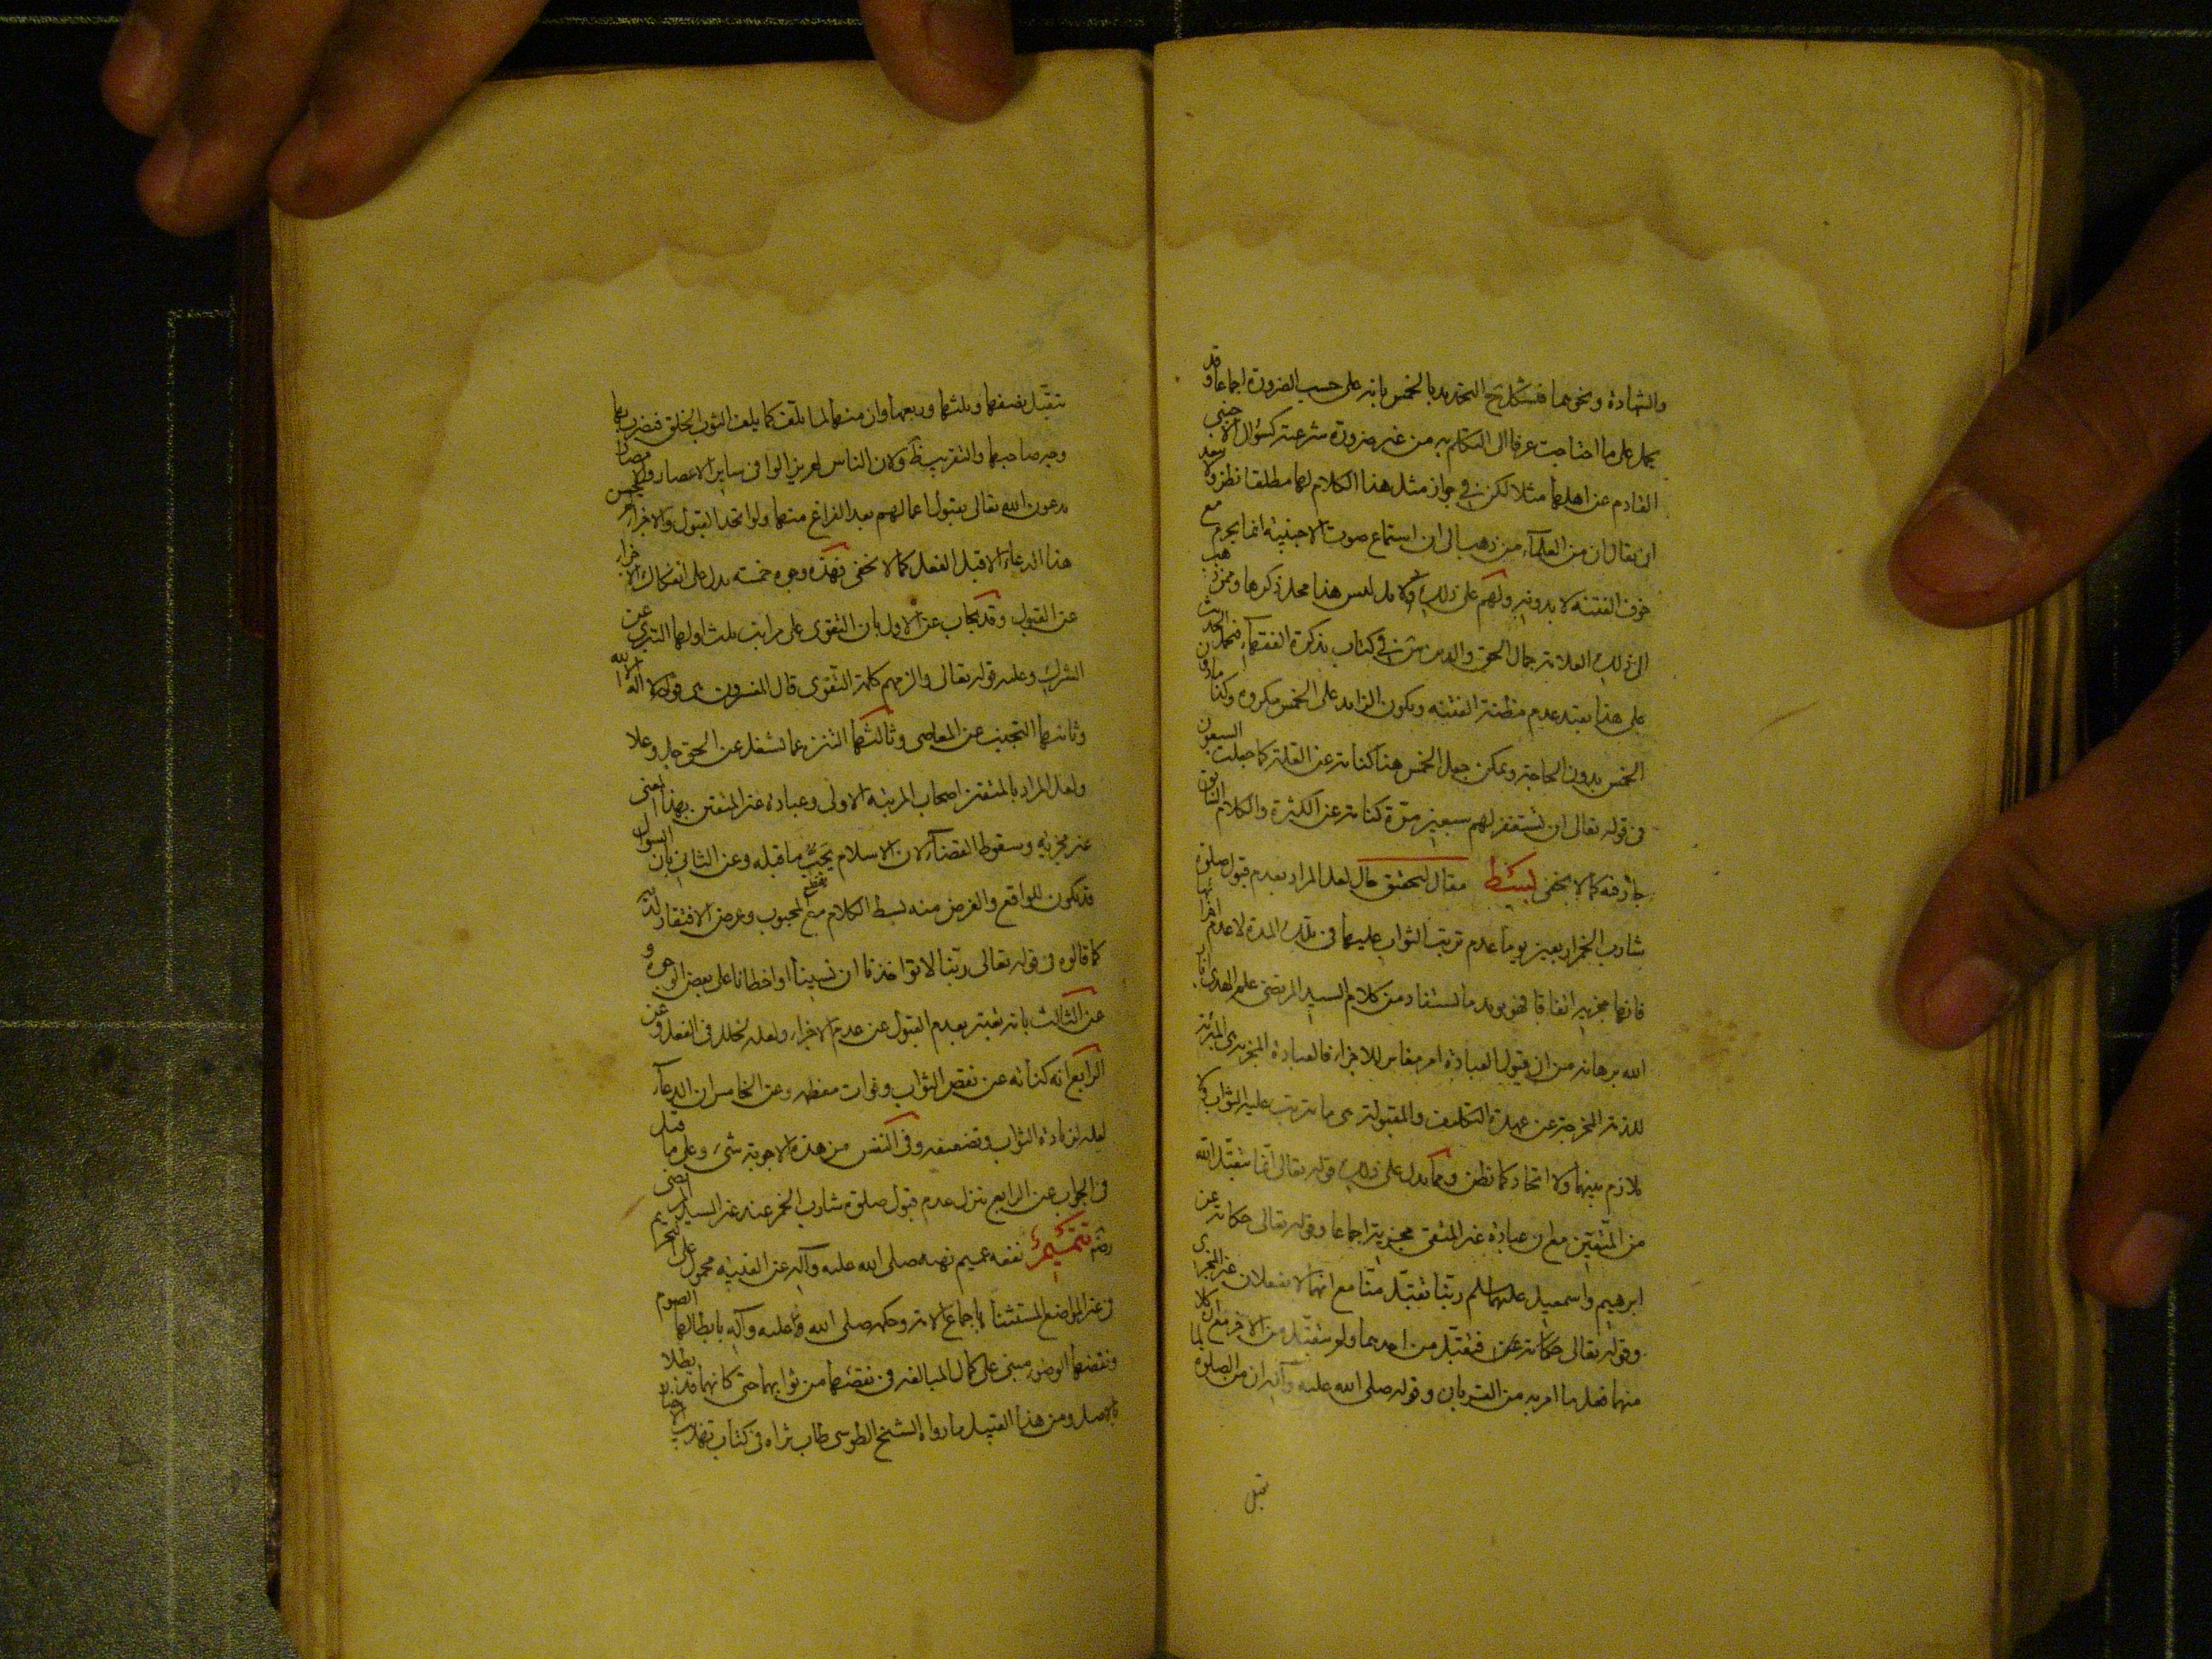 والشهادة ونحوهما فيشكل ح التحديد بالخمس بانه على حسب الضرورة اجماعا وقد
يحمل على ما احتاجت عرفا الى التكلم به من غير ضرورة شرعية كسؤال الاجنبى
القادم عن اهلها مثلا لكن فى جواز مثل هذا الكلام لها مطلقا نظر ولا يبعد
ان يقال ان من العلماء من ذهب الى ان استماع صوت الاجنبية انما يحرم مع
خوف الفتنة لا بدونه ولهم على ذلك دلايل ليس هذا محل ذكرها وممن ذهب
الى ذلك العلامة جمال الحق والدين فى كتاب تذكرة الفقهاء فنحمل الحديث
على هذا بقيد عدم مظنة الفتنة ويكون الزايد على الخمس مكروه وكذا مادون
الخمس بدون الحاجة ويمكن جعل الخمس هنا كناية عن القلة كما جعلت السبعون
فى قوله تعالى ان تستغفر لهم سبعين مرة كناية عن الكثرة والكلام السابق
جار فيه كما لا يخفى مقال لتحقيق حال لعل المراد بعدم قبول صلوة
شارب الخمر اربعين يوما عدم ترتب الثواب عليها فى تلك المدة لا عدم اجزائها
فانها مجزية اتفاقا فهو يويد ما يستفاد من كلام السيد المرتضى علم الهدى انار
الله برهانه من ان قبول العبادة امر مغاير للاجزاء فالعبادة المجزية هى المبرئة
للذمة المخرجة عن عهدة التكليف والمقبولة هى ما يترتب عليه الثواب ولا
تلازم بينهما ولا اتحاد كما يظن ومما يدل على ذلك قوله تعالى انما يتقبل الله
من المتقين مع ان عبادة غير المتقى مجزية اجماعا وقوله تعالى حكاية عن
ابرهيم واسمعيل عليهما السلم ربنا تقبل منا مع انهما لا يفعلان غير المجزى
وقوله تعالى حكاية عن فتقبل من احدهما ولم يتقبل من الاخر مع ان كلا
منهما فعل ما امر به من القربان وقوله صلى الله عليه وآله ان من الصلوة لما
تقبل
يتقبل نصفها وثلثها وربعها وان منها لما تلف كما يلف الثوب الخلق فيضرب بها
وجه صاحبها والتقريب ظ ولان الناس لم يزالوا فى ساير الاعصار والامصار
يدعون الله تعالى بقبول اعمالهم بعد الفراغ منها ولو اتحد القبول والاجزاء لم يحسن
هذا الدعاء الا قبل الفعل كما لا يخفى فهذه وجوه خمسة يدل على انفكاك الاجزاء
عن القبول وقد يجاب عن الاول بان التقوى على مراتب ثلث اولها التبرى عن
الشرك وعليه قوله تعالى والزمهم كلمة التقوى قال المفسرون هى قول لا اله الا الله
وثانيها التجنب عن المعاصى وثالثها التنزه عما يشغل عن الحق جل وعلا
ولعل المراد بالمتقين اصحاب المرتبة الاولى وعبادة غير المتقين بهذا المعنى
غير مجزية وسقوط القضاء لان الاسلام يجب ما قبله وعن الثانى بان السؤال
قد يكون للواقع والغرض منه بسط الكلام مع المحبوب وعرض الافتقار لديه
كما قالوه فى قوله تعالى ربنا لا تؤاخذنا ان نسينا او اخطانا على بعض الوجوه و
عن الثالث بانه يعبر بعدم القبول عن عدم الاجزاء ولعله لخلل فى الفعل وعن
الرابع انه كناية عن نقص الثواب وفوات معظمه وعن الخامس ان الدعاء
لعله لزيادة الثواب وتضعيفه وفى النفس من هذه الاجوبة شىء وعلى ما قيل
فى الجواب عن الرابع ينزل عدم قبول صلوة شارب الخمر عند غير السيد المرتضى
رضه تتميم نفقه عميم نهيه صلى الله عليه وآله عن الغيبة محمول على التحريم
وغير المواضع المستثناة باجماع الامة وحكمه صلى الله عليه وآله بابطالها الصوم
ونقضها الوضوء مبنى على كمال المبالغة فى نقصها من ثوابهما حتى كانهما قد بطلا
بالاصل ومن هذا القبيل ما رواه الشيخ الطوسى طاب ثراه فى كتاب تهذيب الاخبار